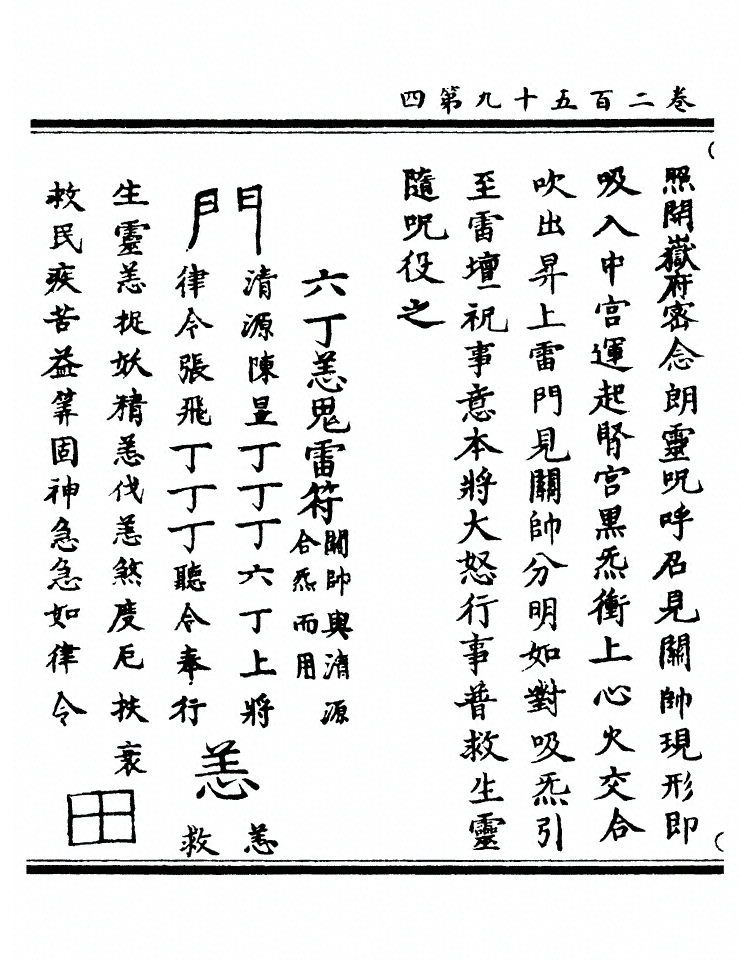 卷二百五十九第四
照開嶽府密念朗靈呪呼召見關帥現形即
吸入中宮運起腎宮黑炁衝上心火交合
吹出昇上雷門見關帥分明如對吸炁引
至雷壇祝事意本將大怒行事普救生靈
隨呪役之
六丁恙鬼雷符
關帥與清源
合炁而用
門
清源陳昱丁丁丁六丁上將
律令張飛丁丁丁聽令奉行
恙
恙
救
生靈恙捉妖精恙伐恙煞度厄扶衰
救民疾苦益筭固神急急如律令
田